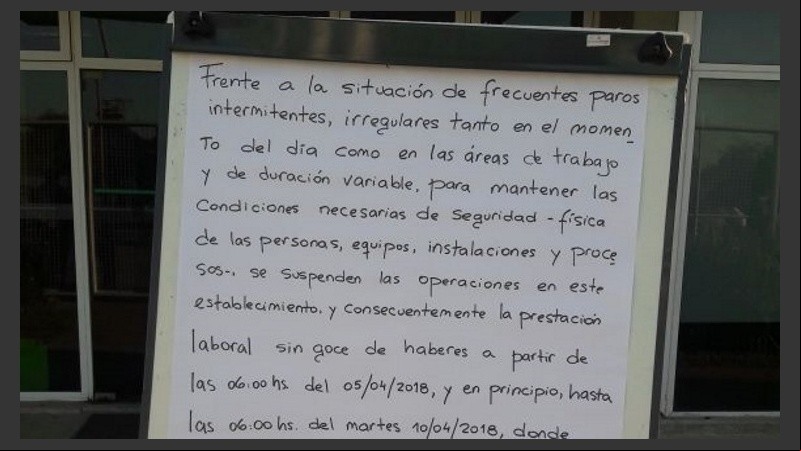 Frente a la situación de frecuentes paros
intermitentes, irregulares tanto en el momen
To del día como en las áreas de trabajo
y de duración variable, para mantener las
Condiciones necesarias de Seguridad - física
de las personas, equipos, instalaciones y proce
sos-, se suspenden las operaciones en este
establecimiento, y consecuentemente la prestación
laboral sin goce de haberes a partir de
las 06:00 hs. del 05/04/2018, y en principio, hasta
las 06:00 hs. del martes 10/04/2018, donde